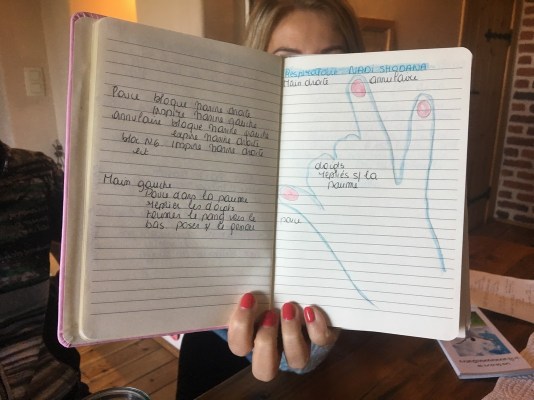 Pouce bloque narine droite
inspire narine gauche
annulaire bloque narine gauche
expire narine droite
inspire narine droite
ect
Main gauche
Pouce dans la paume
replier les doigts
tourner le poing vers le
bas. poser s/ le genou
Respiration NADI SHODANA
Main droite annulaire
doigts
repliés s/ la
paume
pouce